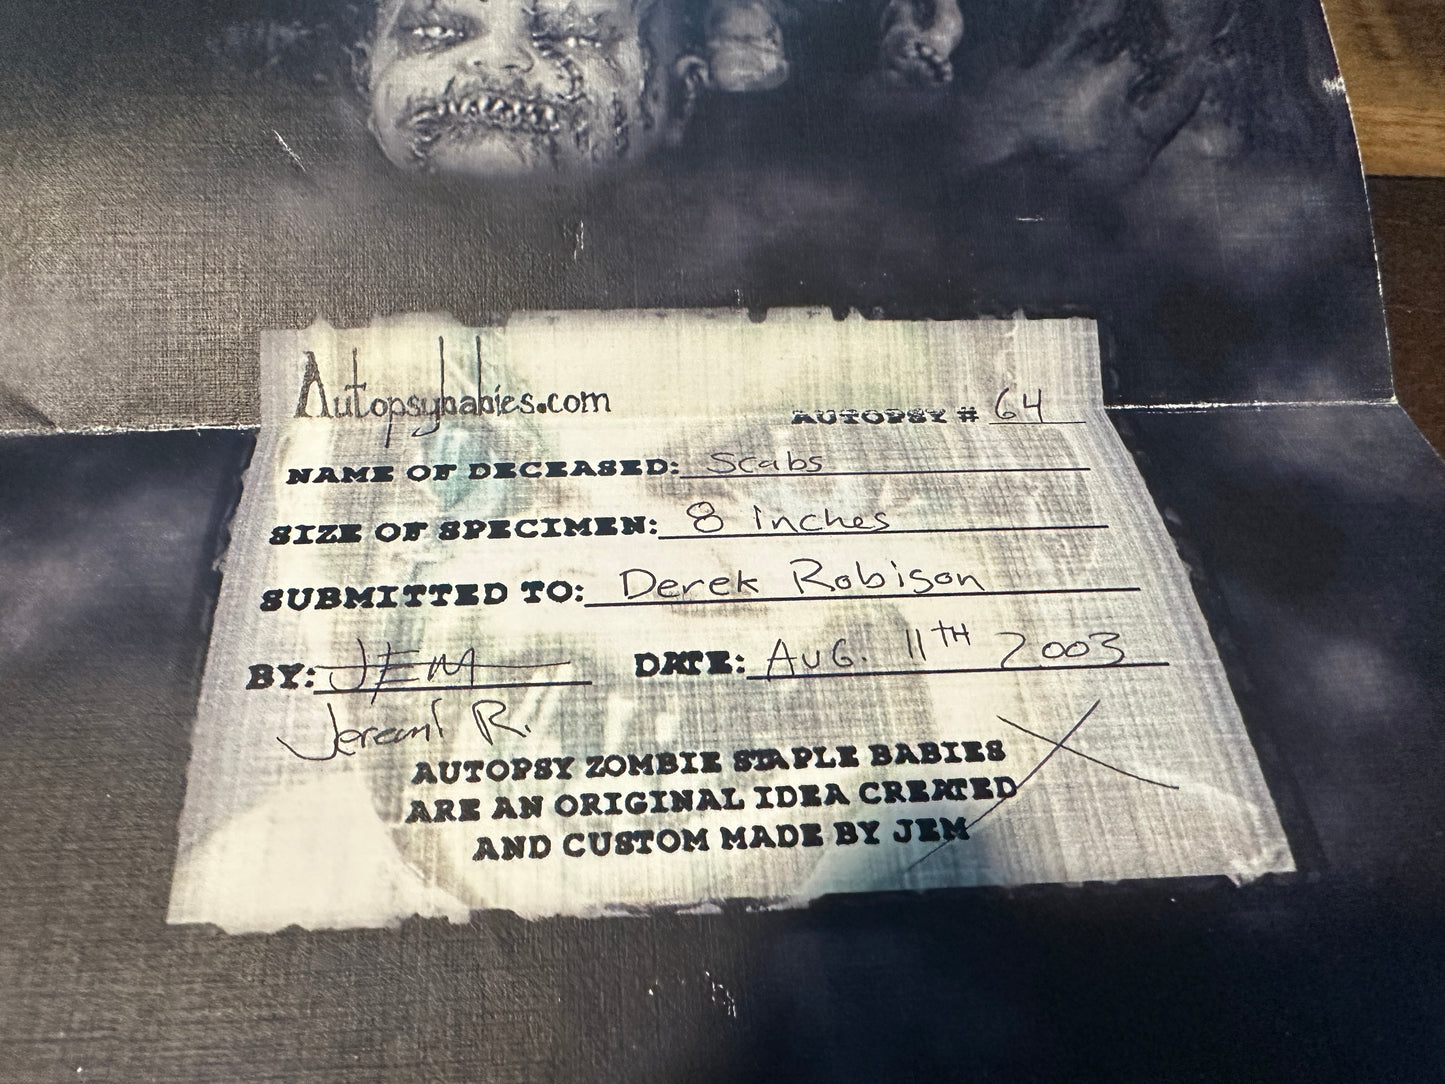 Autopsybabies.com
AUTOPSY # 64
NAME OF DECEASED: Scabs
SIZE OF SPECIMEN: 8 inches
SUBMITTED TO: Derek Robison
BY: JEM DATE: AUG. 11TH 2003
Jeremi R.
AUTOPSY ZOMBIE STAPLE BABIES
ARE AN ORIGINAL IDEA CREATED
AND CUSTOM MADE BY JEM